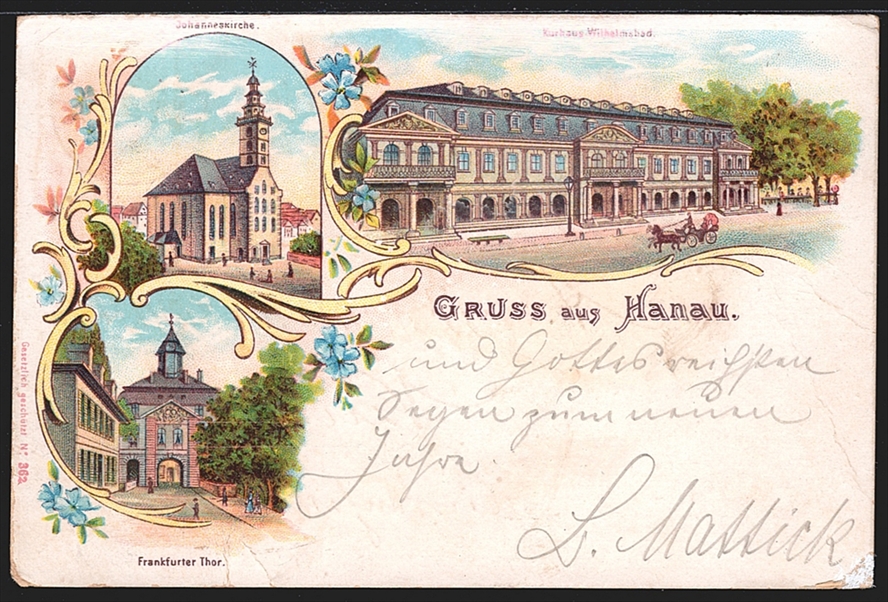 Johanneskirche.
Kurhaus Wilhelmsbad.
GRUSS aus Hanau.
und Gottes reichsten
Segen zum neuen
Jahre.
L. Mattick
Frankfurter Thor.
Gesetzlich geschützt No 362